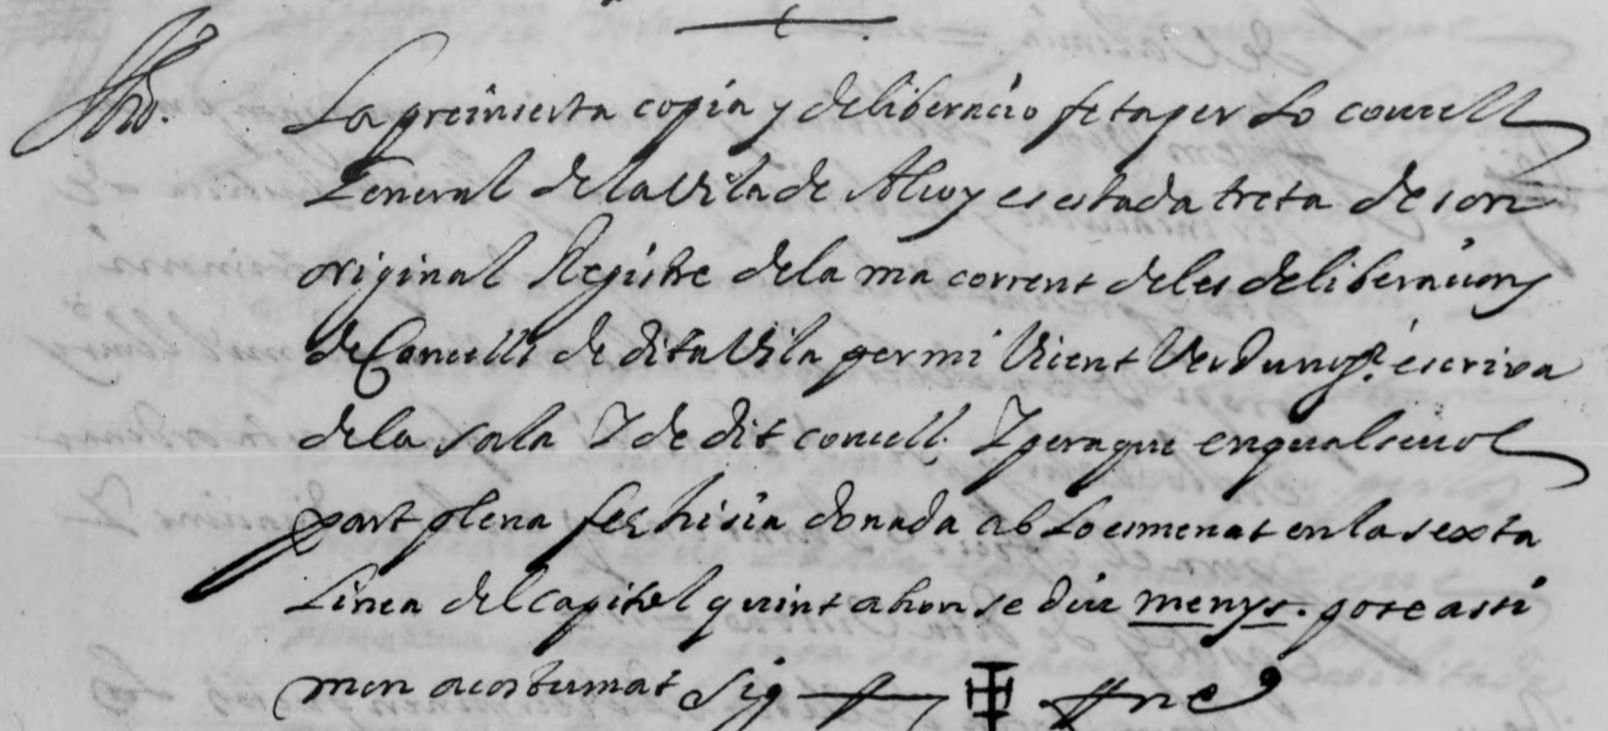 La preinserta copia y deliberacio feta per Lo concell
General de la Vila de Alcoy es estada treta de son
original Registre de la ma corrent de les deliberacions
de Concells de dita Vila per mi Vicent Verdu escriva
de la sala Y de dit concell. Y pera que en qualsevol
part plena fee hi sia donada ab Lo esmenat en la sexta
Linea del Capitol quint ahon se diu menys. pose assi
mon acostumat Sig ne